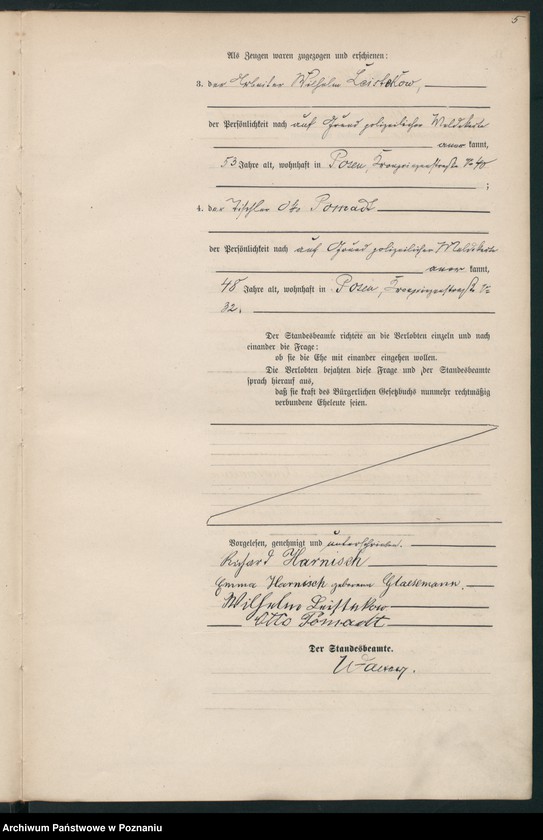 5
Als Zeugen waren zugezogen und erschienen:
3. der Arbeiter Wilhelm Leistikow,
der Persönlichkeit nach auf Grund polizeilicher Meldekarte
anerkannt,
53 Jahre alt, wohnhaft in Posen, Kronprinzenstraße No 48
;
4. der Tischler Otto Pomadt
der Persönlichkeit nach auf Grund polizeilicher Meldekarte
anerkannt,
48 Jahre alt, wohnhaft in Posen, Kronprinzenstraße No
82.
Der Standesbeamte richtete an die Verlobten einzeln und nach
einander die Frage:
ob sie die Ehe mit einander eingehen wollen.
Die Verlobten bejahten diese Frage und der Standesbeamte
sprach hierauf aus,
daß sie kraft des Bürgerlichen Gesetzbuchs nunmehr rechtmäßig
verbundene Eheleute seien.
Vorgelesen, genehmigt und unterschrieben.
Richard Harnisch
Emma Harnisch geborene Glaesemann.
Wilhelm Leistikow
Otto Pomadt
Der Standesbeamte.
Archiwum Państwowe w Poznaniu